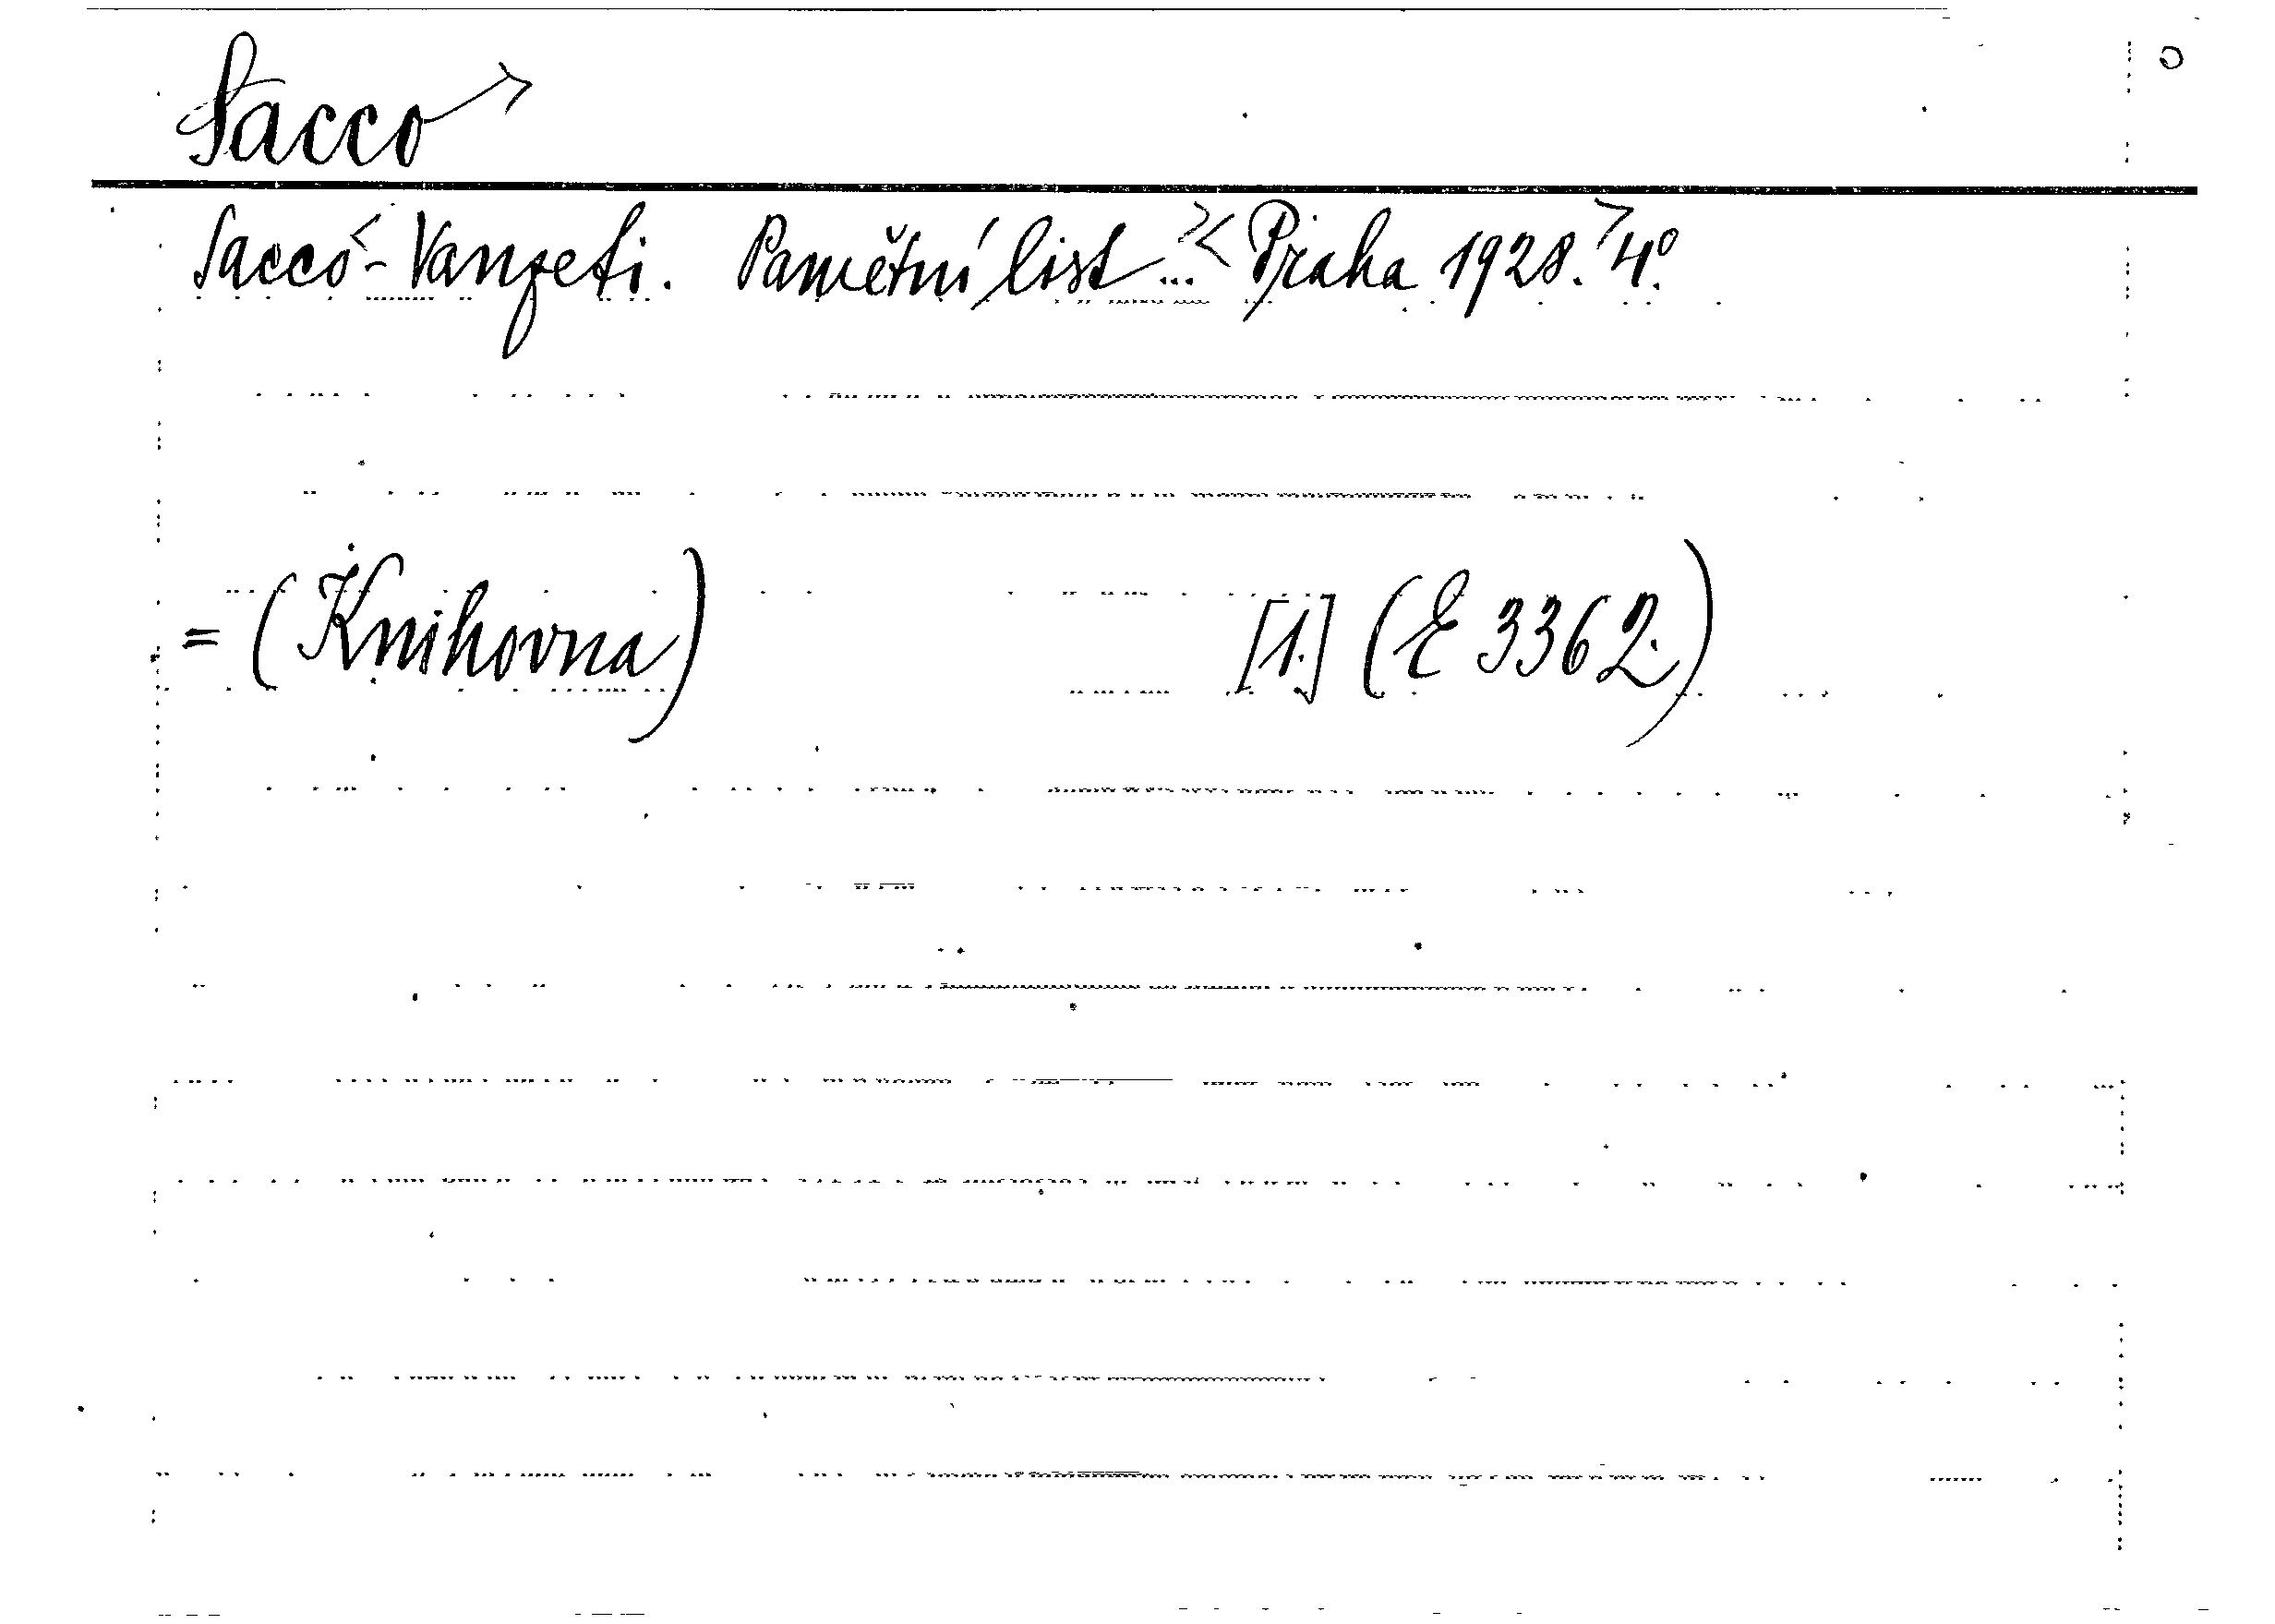 Sacco>
Sacco<-Vanzeti. Pamětní list...>< Praha 1928.> 4°.
= (Knihovna) [1.] (E 3362.)